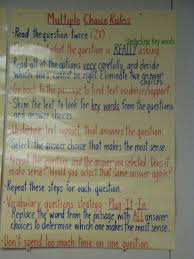 Multiple Choice Rules
- Read the question twice (2X)
Underline key words
what the question is REALLY asking
- Read all of the options very carefully, and decide
which ones cannot be right. Eliminate two answer
choices.
- Go back to the passage to find text evidence/support.
- Skim the text to look for the key words from the questions
and answer choices.
- Underline text support that answers the question
- Select the answer choice that makes the most sense.
the question and the answer you selected. Does it
make sense? Would you select that same answer again?
- Repeat these steps for each question.
- Vocabulary questions strategy - Plug It In
Replace the word from the passage with ALL answer
choices to determine which one makes the most sense.
- Don't spend too much time on one question